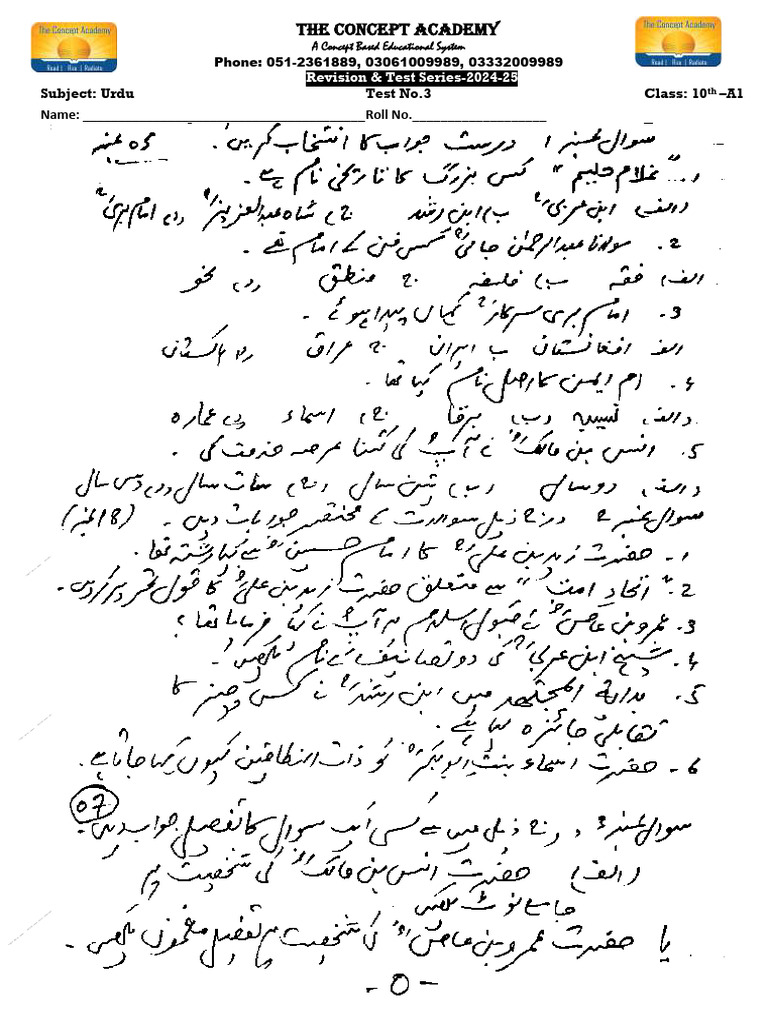 The Concept Academy
Read | Rise | Radiate
THE CONCEPT ACADEMY
A Concept Based Educational System
Phone: 051-2361889, 03061009989, 03332009989
Revision & Test Series-2024-25
The Concept Academy
Read | Rise | Radiate
Subject: Urdu Test No.3 Class: 10th –A1
Name: ________________________________________Roll No.___________________
سوال نمبر 1 درست جواب کا انتخاب کریں۔ 05 نمبر
1۔ "غلام حلیم" کس بزرگ کا تاریخی نام ہے۔
(الف) ابن عربیؒ ب) ابن رشد ج) شاہ عبدالعزیزؒ د) امام بریؒ
2۔ مولانا عبدالرحمٰن جامیؒ کس فن کے امام تھے۔
الف) فقہ ب) فلسفہ ج) منطق د) نحو
3۔ امام بری سرکارؒ کہاں پیدا ہوئے۔
الف افغانستان ب ایران ج عراق د پاکستان
4۔ ام ایمن کا اصل نام کیا تھا۔
(الف) نسیبہ (ب) برقا ج) اسماء د) عمارہ
5۔ انس بن مالکؓ نے آپؐ کی کتنا عرصہ خدمت کی۔
(الف) دو سال (ب) تین سال (ج) سات سال (د) دس سال
سوال نمبر 2 درج ذیل سوالات کے مختصر جوابات دیں۔ (18 نمبر)
1۔ حضرت زید بن علیؒ کا امام حسینؓ سے کیا رشتہ تھا۔
2۔ "اتحاد امت" سے متعلق حضرت زید بن علیؒ کا قول تحریر کریں۔
3۔ عمرو بن عاصؓ کے قبول اسلام پر آپؐ نے کیا فرمایا تھا؟
4۔ شیخ ابن عربیؒ کی دو تصانیف کے نام لکھیں۔
5۔ بدایة المجتھد میں ابن رشدؒ نے کس چیز کا
تقابلی جائزہ لیا ہے۔
6۔ حضرت اسماء بنت ابوبکرؓ کو ذات النطاقین کیوں کہا جاتا ہے۔
سوال نمبر 3 درج ذیل میں سے کسی ایک سوال کا تفصیلی جواب دیں۔ 07
(الف) حضرت انس بن مالکؓ کی شخصیت پر
جامع نوٹ لکھیں
یا حضرت عمرو بن عاصؓ کی شخصیت پر تفصیلی مضمون لکھیں۔
-0-